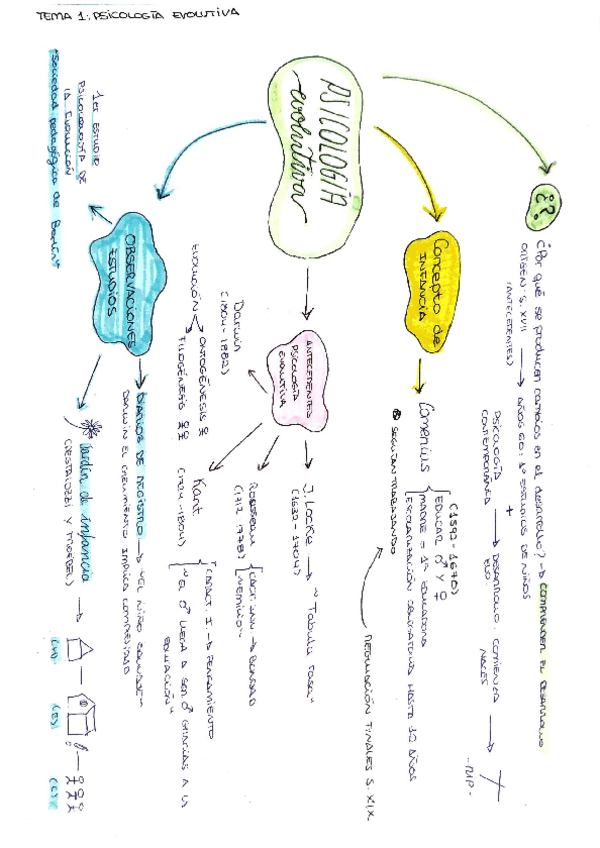 TEMA 1: PSICOLOGÍA EVOLUTIVA
PSICOLOGÍA
evolutiva
¿?
¿Por qué se producen cambios en el desarrollo? → COMPRENDER EL DESARROLLO
ORIGEN: S. XVII → AÑOS 60: 1º ESTUDIOS DE NIÑOS
(ANTECEDENTES)
+
PSICOLOGÍA
CONTEMPORÁNEA → DESARROLLO: COMIENZA
NACES
Concepto de
INFANCIA
Comenius
(1592-1670)
EDUCAR ♂ Y ♀
MADRE = 1ª EDUCADORA
ESCOLARIZACIÓN OBLIGATORIA HASTA 12 AÑOS
SEGUÍAN TRABAJANDO
REVOLUCIÓN FINALES S. XIX
ANTECEDENTES
PSICOLOGÍA
EVOLUTIVA
J. Locke → "Tabula rasa"
(1632-1704)
ROUSSEAU
(1712-1778)
CARÁCT. INN → BONDAD
"EMILIO"
Kant
(1724-1804)
CARÁCT. I. → PENSAMIENTO
"EL ♂ LLEGA A SER ♂ GRACIAS A LA
EDUCACIÓN"
Darwin
EVOLUCIÓN
ONTOGÉNESIS
FILOGÉNESIS
OBSERVACIONES
ESTUDIOS
1er ESTUDIO
PSICOLOGÍA DE
LA EVOLUCIÓN
"Sociedad pedagógica de Berlín"
DIARIOS DE REGISTRO → "EL NIÑO
DARWIN EL CRECIMIENTO IMPLICA COMPLEJIDAD
Jardín de infancia
(PESTALOZZI Y FROEBEL)